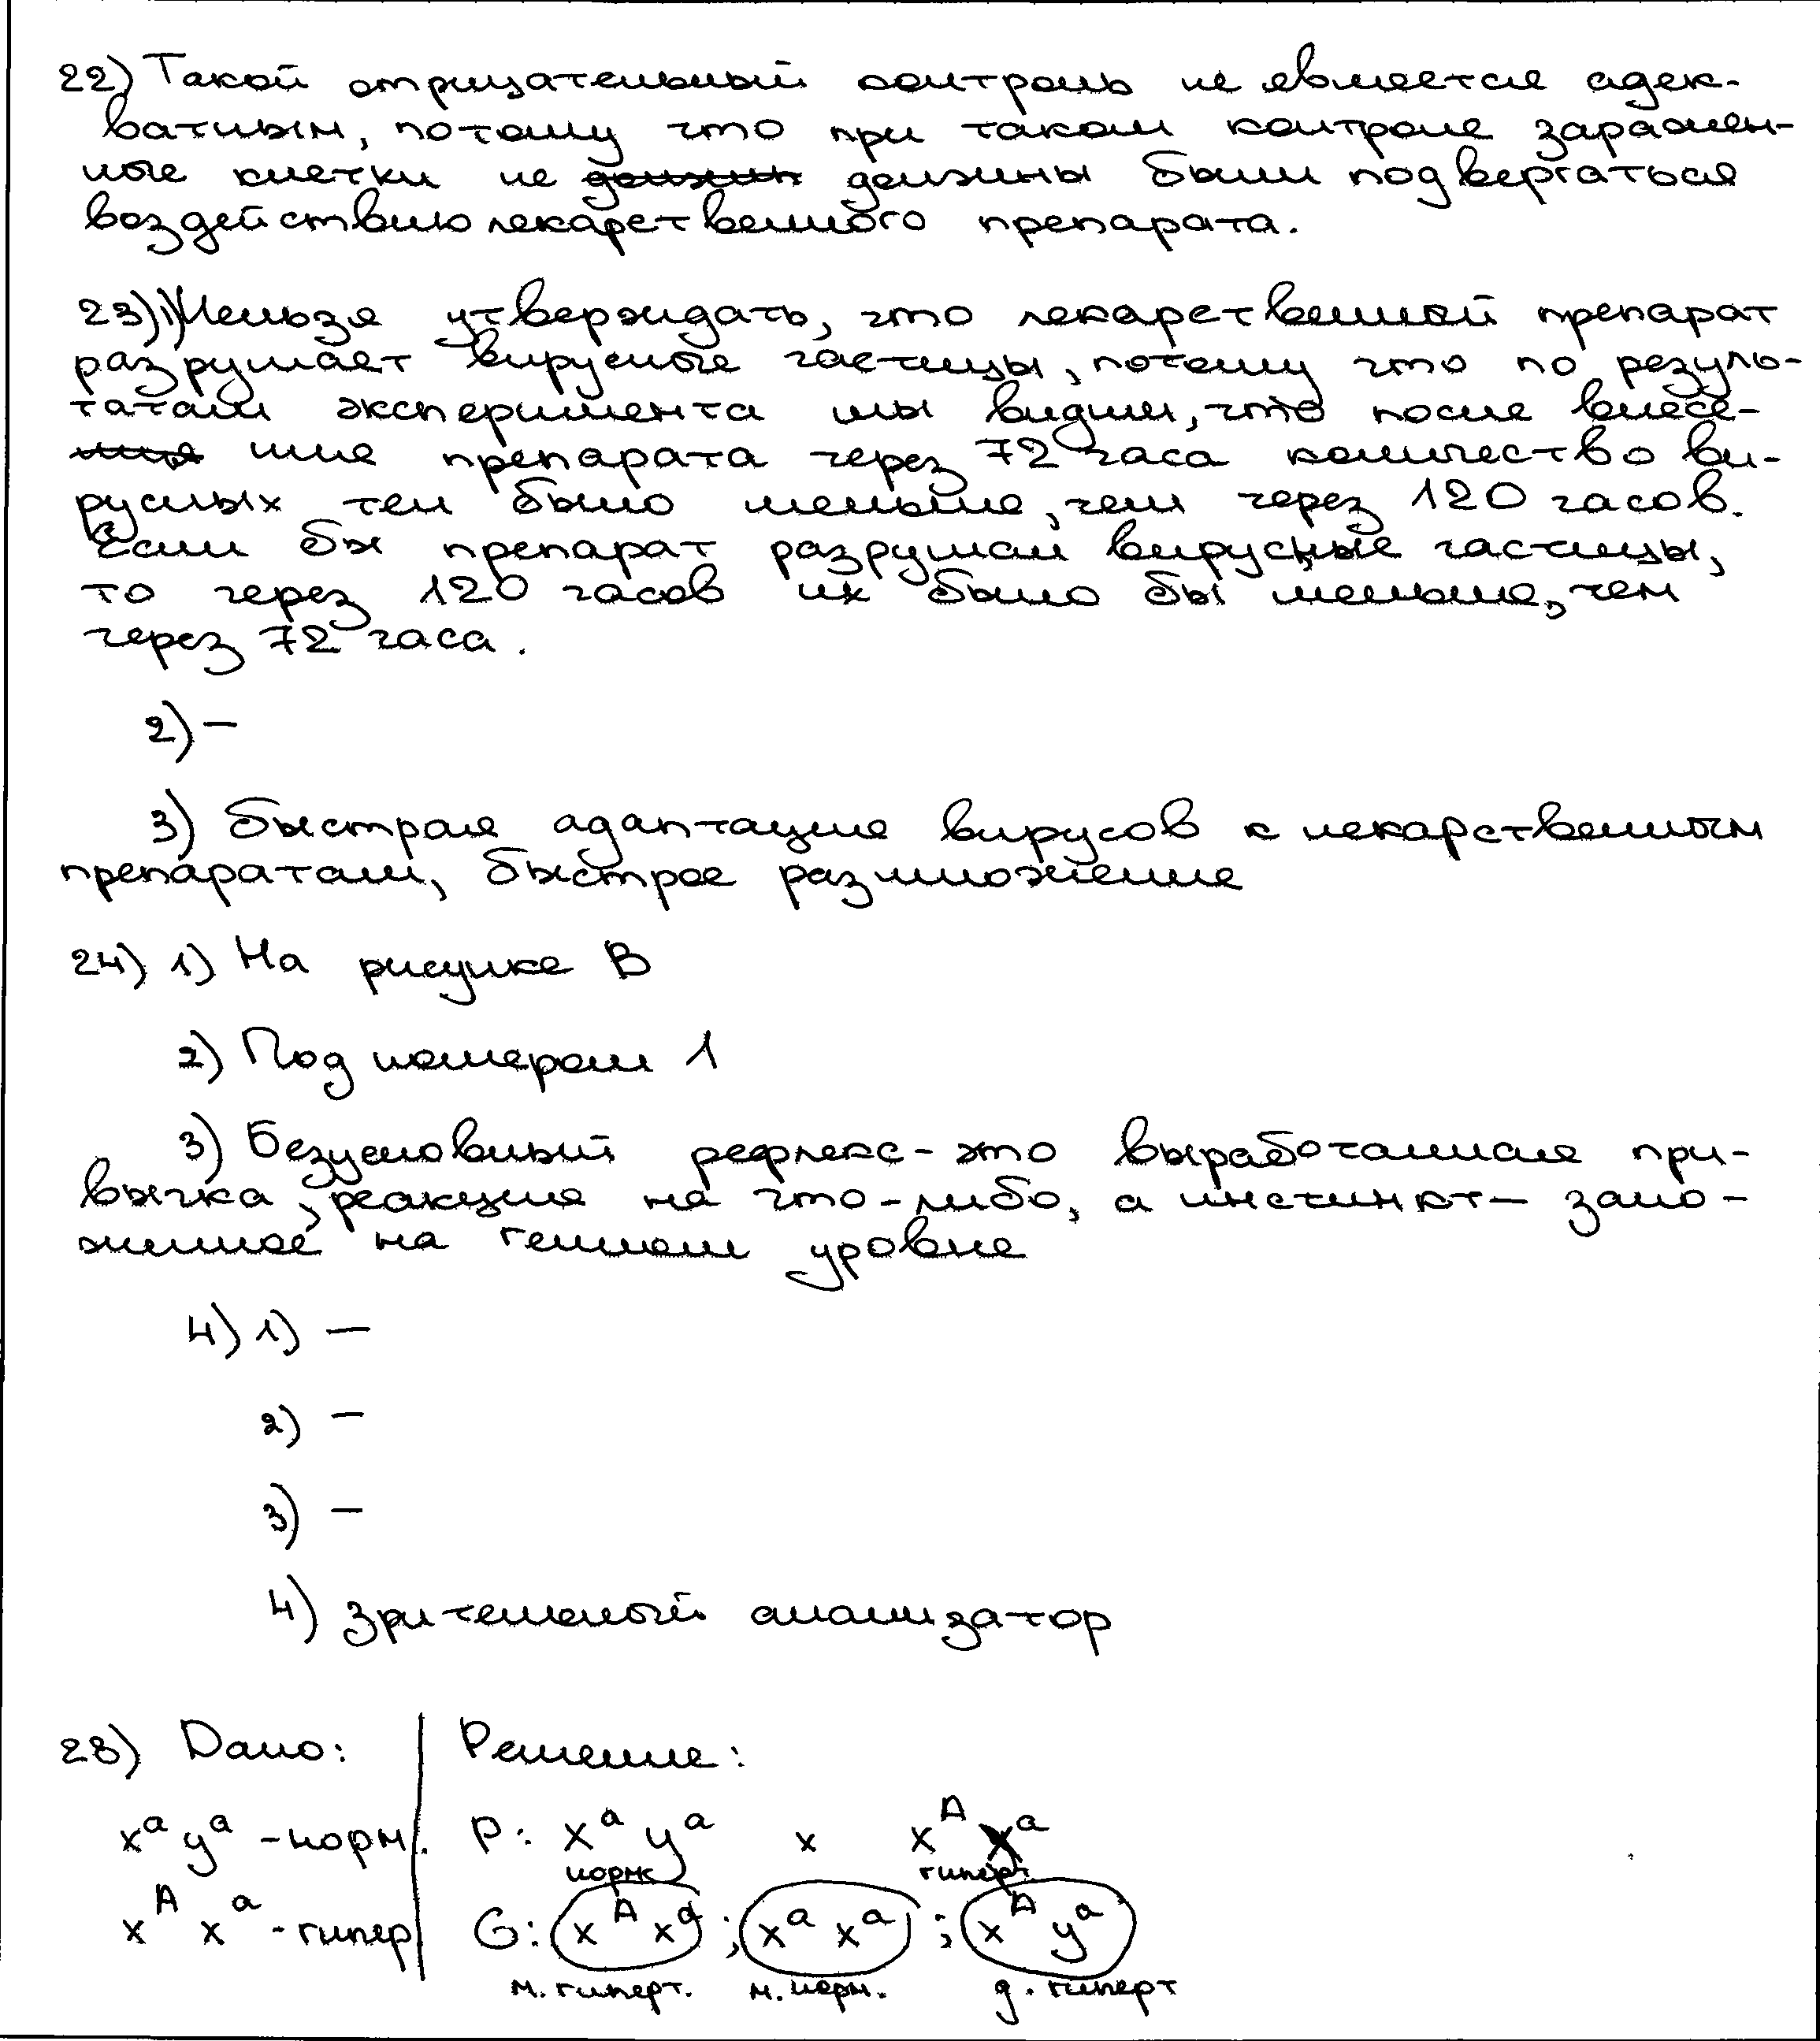 22) Такой отрицательный контроль не является адек-
ватным, потому что при таком контроле заражен-
ные клетки не должны были подвергаться
воздействию лекарственного препарата.
23) 1) Нельзя утверждать, что лекарственной препарат
разрушает вирусные частицы, потому что по резуль-
татам эксперимента мы видим, что после внесе-
ние препарата через 72 часа количество ви-
русных тел было меньше, чем через 120 часов.
Если бы препарат разрушал вирусные частицы,
то через 120 часов их было бы меньше, чем
через 72 часа.
2) –
3) Быстрая адаптация вирусов к лекарственным
препаратам, быстрое размножение
24) 1) На рисунке В
2) Под номером 1
3) Безусловный рефлекс - это выработанная при-
вычка, реакция на что-либо, а инстинкт – зало-
женное на генном уровне
4) 1) –
2) –
3) –
4) Зрительный анализатор
28) Дано: Решение:
xᵃ yᵃ - норм. P: xᵃ yᵃ x xᴬ xᵃ
норм гиперт.
xᴬ xᵃ - гипер G: xᴬ xᵃ ; xᵃ xᵃ ; xᴬ yᵃ
м. гиперт. м. норм. д. гиперт